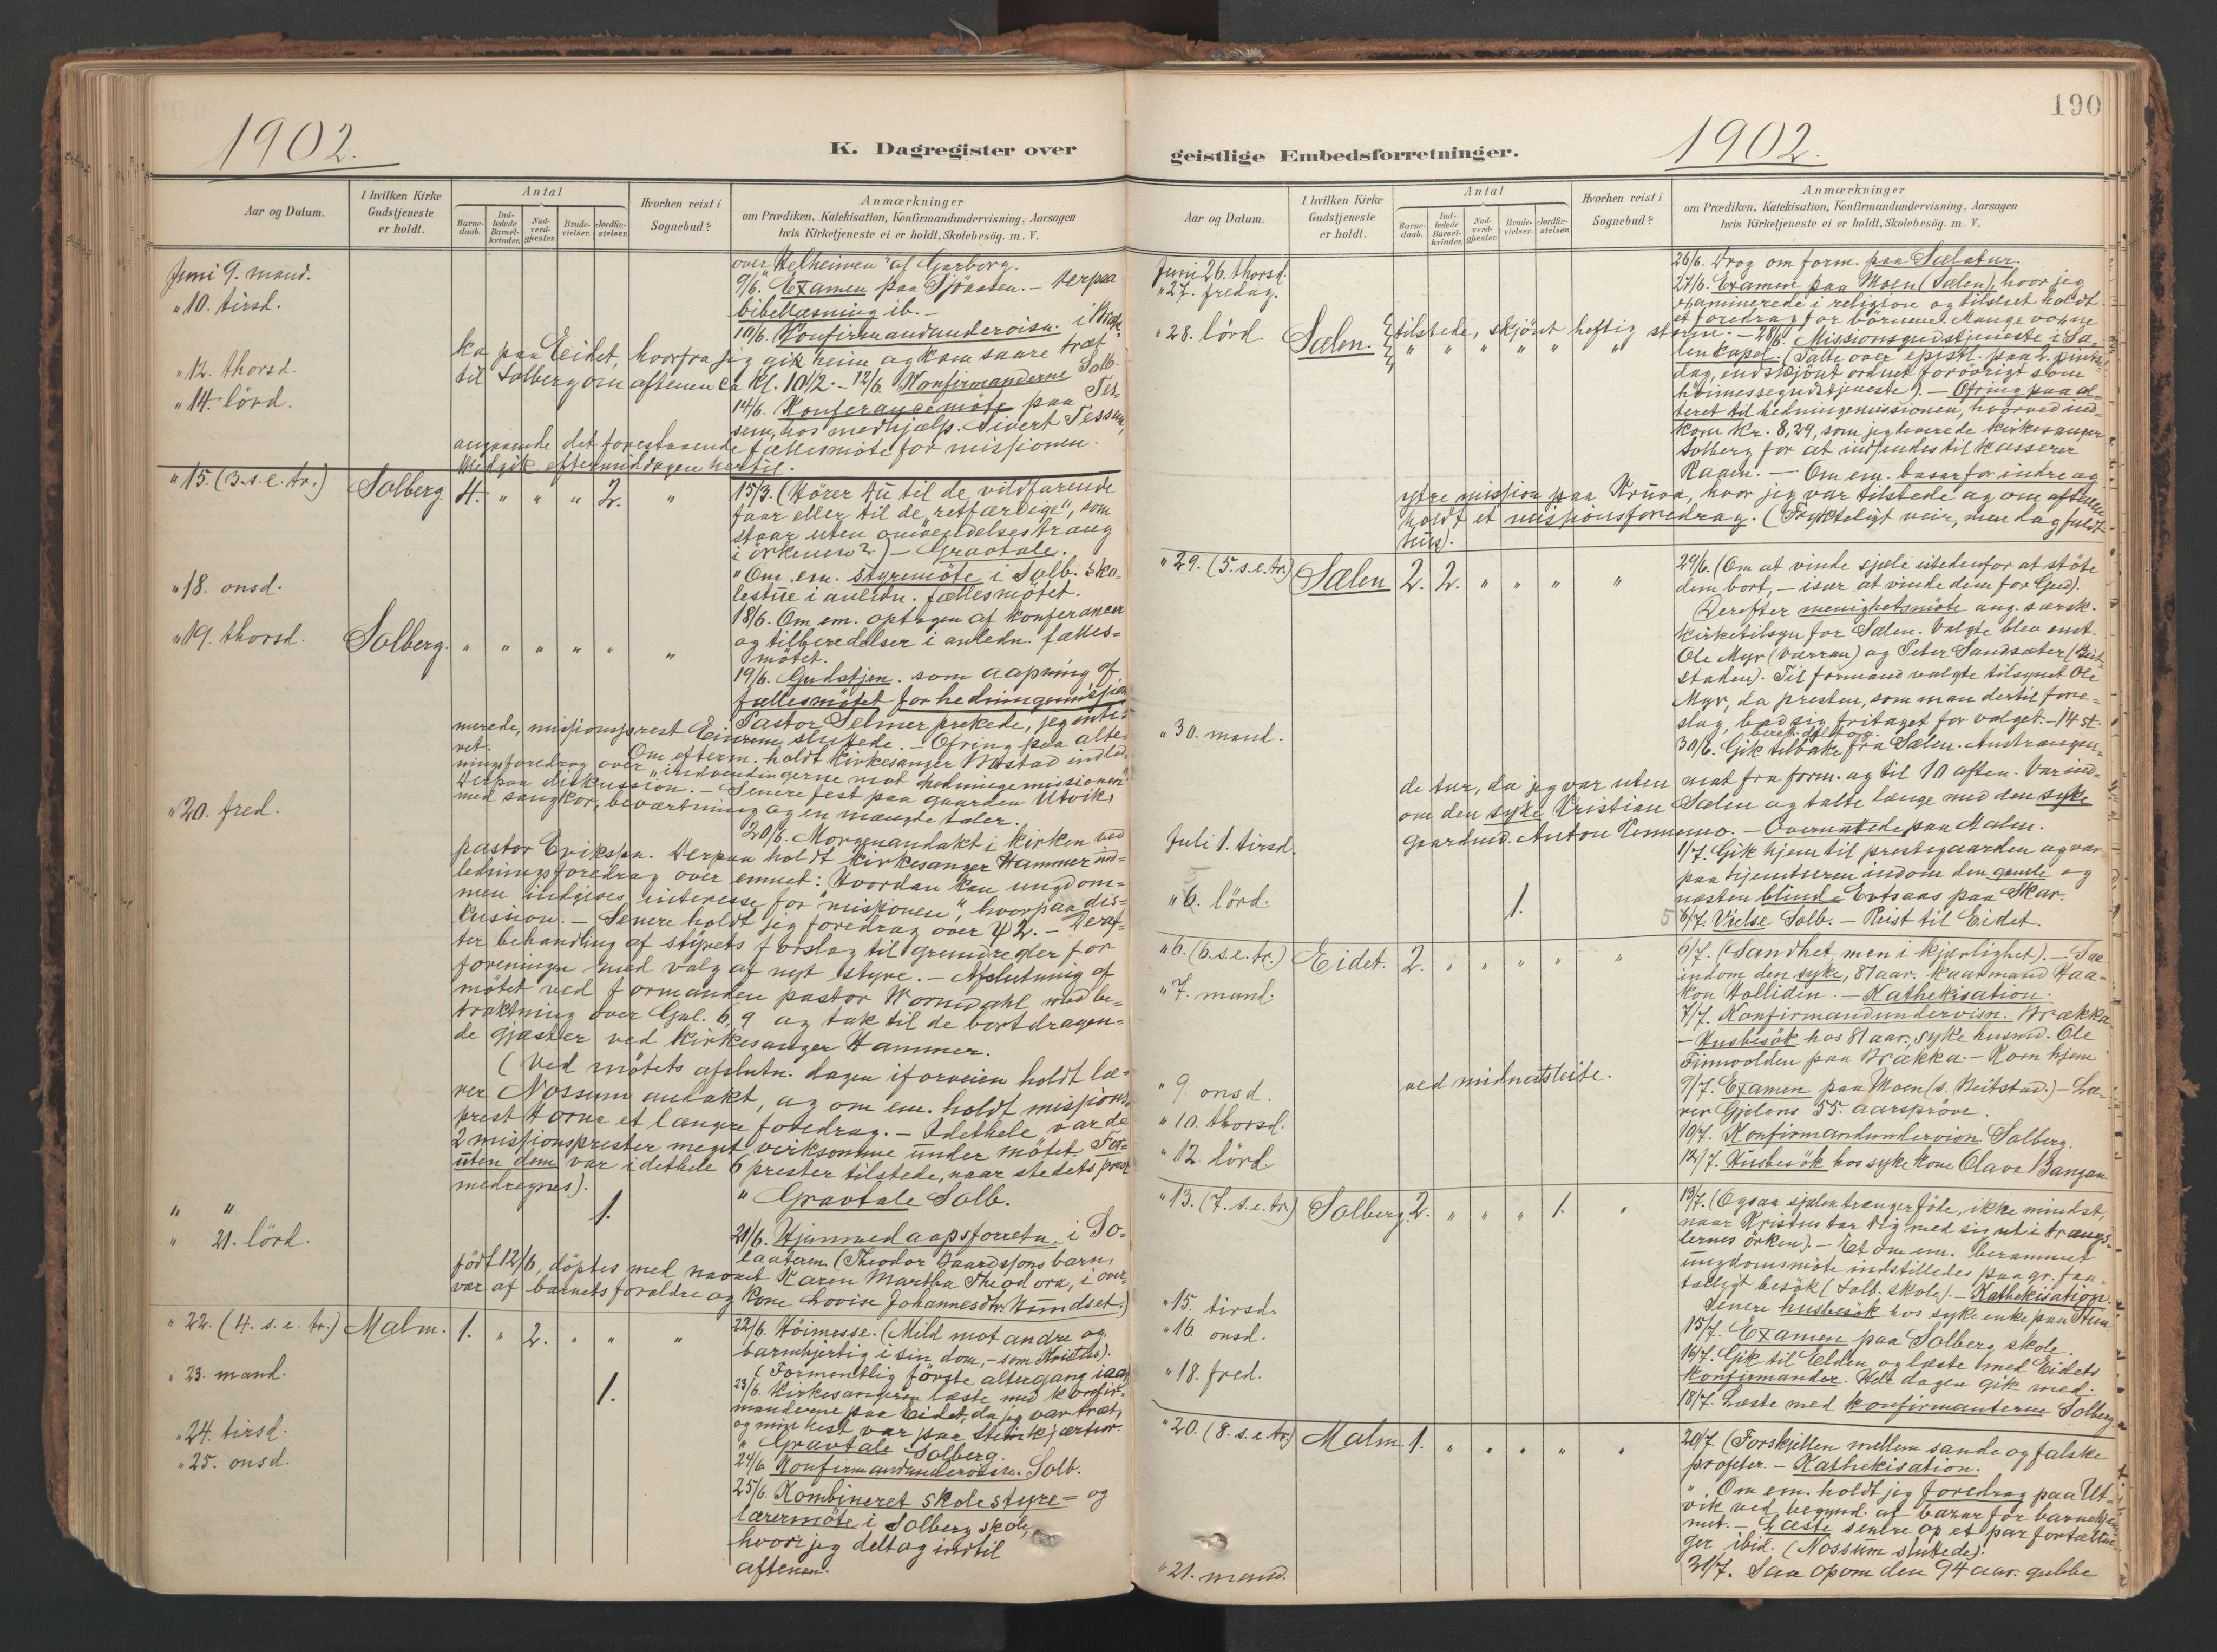 190
1902.
K. Dagregister over
Aar og Datum.
I hvilken Kirke
Gudstjeneste
er holdt.
Antal
Barne-
daab.
Ind-
ledede
Barsel-
kvinder.
Nad-
verd-
gjæster.
Brude-
vielser.
Jordfæ-
stelser.
Hvorhen reist i
Sognebud?
Anmærkninger
om Prædiken, Katekisation, Konfirmandundervisning, Aarsagen
hvis Kirketjeneste ei er holdt, Skolebesög. m. V.
over "Helheimen" af Garborg.
Juni 9. mand.
9/6. Examen paa - derpaa
" 10. tirsd.
bibellæsning ib. -
10/6. Konfirmandundervisn. i
ka paa Eidet, hvorfra jeg gik heim og kom saare træt
" 12. thorsd.
til Solberg om aftenen ca Kl. 10 1/2. - 12/6 Konfirmanderne Solb.
" 14. lörd.
14/6. Konferansemöte paa Tes-
sem, hos medhjælp. Sivert Tessem,
angaaende det forestaaende fællesmöte for missionen.
Medgik eftermiddagen hertil.
" 15. (3. s. e. tr.) Solberg. 4. " " " 2. "
15/3. (Hörer du til de vildfarende
faar eller til de "retfærdige", som
staar uten omvendelsestrang
i örkenen?) - Gravtale.
" Om em. styremöte i Solb. sko-
lestue i anledn. fællesmötet.
" 18. onsd.
18/6. Om em. optagen af konferancer
og tilberedelser i anledn. fælles-
mötet.
" 19. thorsd. Solberg. " " " " " "
19/6. Gudstjen. som aapning af
fællesmötet for hedningemission
Pastor Selmer prekede, jeg inti-
merede, missionsprest Einrem sluttede. - Ofring paa alte-
ret. Om efterm. holdt kirkesanger Bastad indled-
ningsforedrag over "indvendingerne mot hedningemissionen"
Derpaa diskussion. - Senere fest paa gaarden Utvik,
med sangkor, bevertning og en mængde taler.
" 20. fred.
20/6. Morgenandakt i kirken ved
pastor Eriksen. Derpaa holdt kirkesanger Hammer ind-
ledningsforedrag over emnet: Hvordan kan ungdom-
men indgives interesse for "missionen", hvorpaa dis-
kussion. - Senere holdt jeg foredrag over ψ 2. - Deref-
ter behandling af styrets forslag til grundregler for
foreningen med valg af nyt styre. - Afslutning af
mötet ved formanden pastor Worndahl med be-
traktning over Gal. 6,9 og tak til de bortdragen-
de gjæster ved kirkesanger Hammer.
(Ved mötets afslutn. dagen iforveien holdt læ-
rer Nossum andakt, og om em. holdt missions-
prest Horne et længere foredrag. - Idethele var de
2 missionsprester meget virksomme under mötet. For-
uten dem var idethele 6 prester tilstede, naar stedets prest
medregnes).
" " 1. " Gravtale Solb.
" 21. lörd.
21/6. Hjemmedaapsforretn. i So-
laateren. (Theodor Baardsens barn,
födt 12/6, döptes med navnet Karen Martha Theodora, i over-
var af barnets forældre og kone Lovise Johannesdtr. Hundset.)
" 22. (4. s. e. tr.) Malm. 1. " 2. " " "
22/6. Höimesse. (Mild mot andre og
barmhjertig i sin dom, - som Kristus).
(Formentlig förste altergang iaar)
" 23. mand. 1.
23/6. Kirkesangeren læste med konfir-
manderne paa Eidet, da jeg var træt,
og min hest var paa Steinkjærtur.
" Gravtale Solberg.
" 24. tirsd.
24/6 Konfirmandundervisn. Solb.
" 25. onsd.
25/6. Kombineret skolestyre- og
lærermöte i Solberg skole,
hvori jeg deltog indtil
aftenen.
geistlige Embedsforretninger.
1902.
Aar og Datum.
I hvilken Kirke
Gudstjeneste
er holdt.
Antal
Barne-
daab.
Ind-
ledede
Barsel-
kvinder.
Nad-
verd-
gjæster.
Brude-
vielser.
Jordfæ-
stelser.
Hvorhen reist i
Sognebud?
Anmærkninger
om Prædiken, Katekisation, Konfirmandundervisning, Aarsagen
hvis Kirketjeneste ei er holdt, Skolebesög. m. V.
Juni 26. thorsd.
26/6. Drog om form. paa Sælatur.
" 27. fredag.
27/6. Examen paa Moen (Sælen), hvor jeg
examinerede i religion og tilsidst holdt
et foredrag for börnene. Mange voxne
" 28. lörd Sælen. tilstede, skjönt heftig storm. - 28/6. Missionsgudstjeneste i Sæ-
" " " " " "
lenkapel. (Talte over epistl. paa 2. pintse-
dag, endskjönt ordnet forövrigt som
höimessegudstjeneste). - Ofring paa al-
teret til hedningemissionen, hvorved ind-
kom Kr. 8,29, som jeg leverede kirkesanger
Solberg for at indsendes til kasserer
Raaen. - Om em. basar for indre og
ytre mission paa Kruva, hvor jeg var tilstede og om aftenen
holdt et missionsforedrag. (Frykteligt veir, men dog fuldt
hus).
" 29. (5. s. e. tr.) Sælen 2. 2. " " " "
29/6. (Om at vinde sjæle istedenfor at stöte
dem bort, - især at vinde dem for Gud).
Derefter menighetsmöte ang. særsk.
kirketilsyn for Sælen. Valgte blev enst.
Ole Myr (Værran) og Peter Sandsæter (Beit-
staden). Til formand valgte tilsynet Ole
Myr, da presten, som man dertil fore-
slog, bad sig fritaget for valget. - 14 st.
beret. deltog.
" 30. mand.
30/6. Gik tilbake fra Sælen. Anstrængen-
de tur, da jeg var uten mat fra form. og til 10 aften. Var ind-
om den syke Kristian Sælen og talte længe med den syke
gaardmd. Anton - Overnattede paa Malm.
Juli 1. tirsd.
1/7. Gik hjem til prestegaarden og var
paa hjemturen indom den gamle og
næsten blinde Ertsaas paa Skar.
" 6. lörd. 5 1.
5 6/7. Vielse Solb. - Reist til Eidet.
" 6. (6. s. e. tr.) Eidet. 2. " " " " "
6/7. (Sandhet, men i kjærlighet). - Saa
indom den syke, 81 aar. kaarmand Haa-
kon Hollidin. - Kathekisation.
" 7. mand.
7/7. Konfirmandundervisn. Brækka
- Husbesök hos 81 aar. syke husmd. Ole
Finnvolden paa Brækka. - Kom hjem
ved midnatsleite.
" 9. onsd.
9/7. Examen paa Moen (s. Beitstad.) - Læ-
rer Gjelens 55. aarspröve.
" 10. thorsd.
10/7. Konfirmandundervisn. Solberg.
" 12. lörd.
12/7. Husbesök hos syke kone Olava Bangan
" 13. (7. s. e. tr) Solberg. 2. " " " 1. "
13/7. (Ogsaa sjælen trænger föde, ikke mindst,
naar Kristus tar dig med sig ut i trængs-
lernes örken). - Et om em. berammet
ungdomsmöte indstilledes paa gr. faa-
talligt besök (Solb. skole). - Kathekisation.
Senere husbesök hos syke enke paa
" 15. tirsd.
15/7. Examen paa Solberg skole.
" 16. onsd.
16/7. Gik til Elden og læste med Eidets
konfirmander. Hele dagen gik med.
" 18. fred.
18/7. Læste med konfirmanterne Solberg.
" 20. (8. s. e. tr) Malm. 1. " " " " "
20/7. (Forskjellen mellem sande og falske
profeter. - Kathekisation.
" Om em. holdt jeg foredrag paa Ut-
vik ved begynd. af basar for barnehjem-
met. - Læste senere op et par fortællin-
ger ibid. (Nossum sluttede).
" 21. mand.
21/7. Saa op om den 94 aar. gubbe